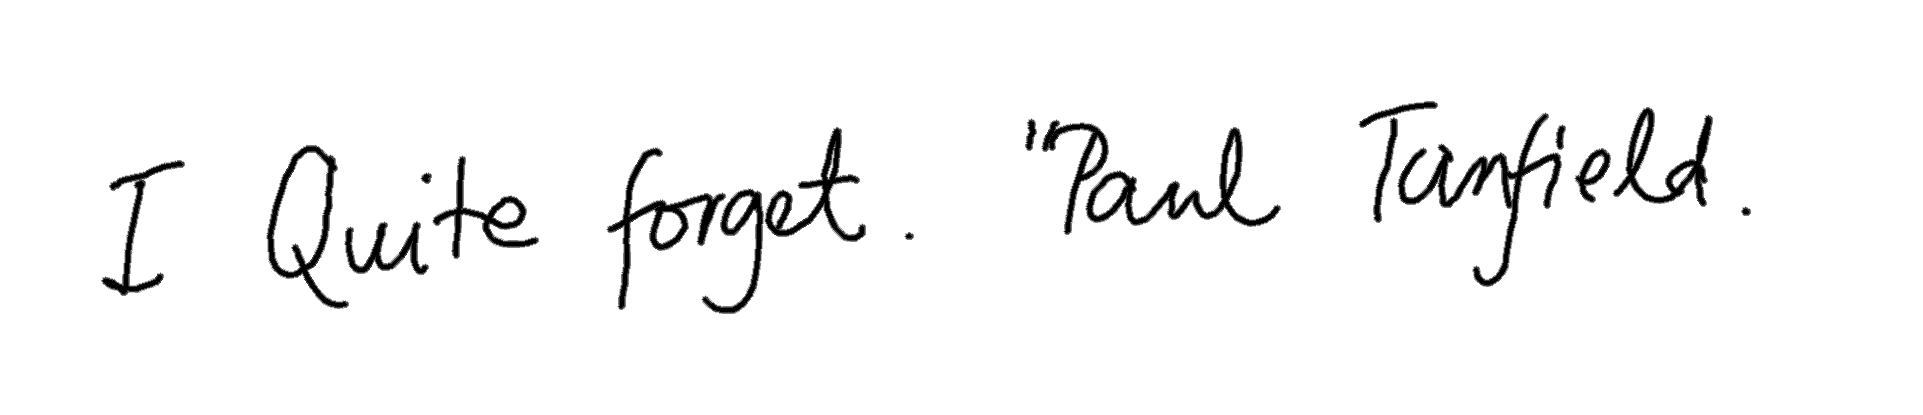 I Quite forget. "Paul Tanfield.